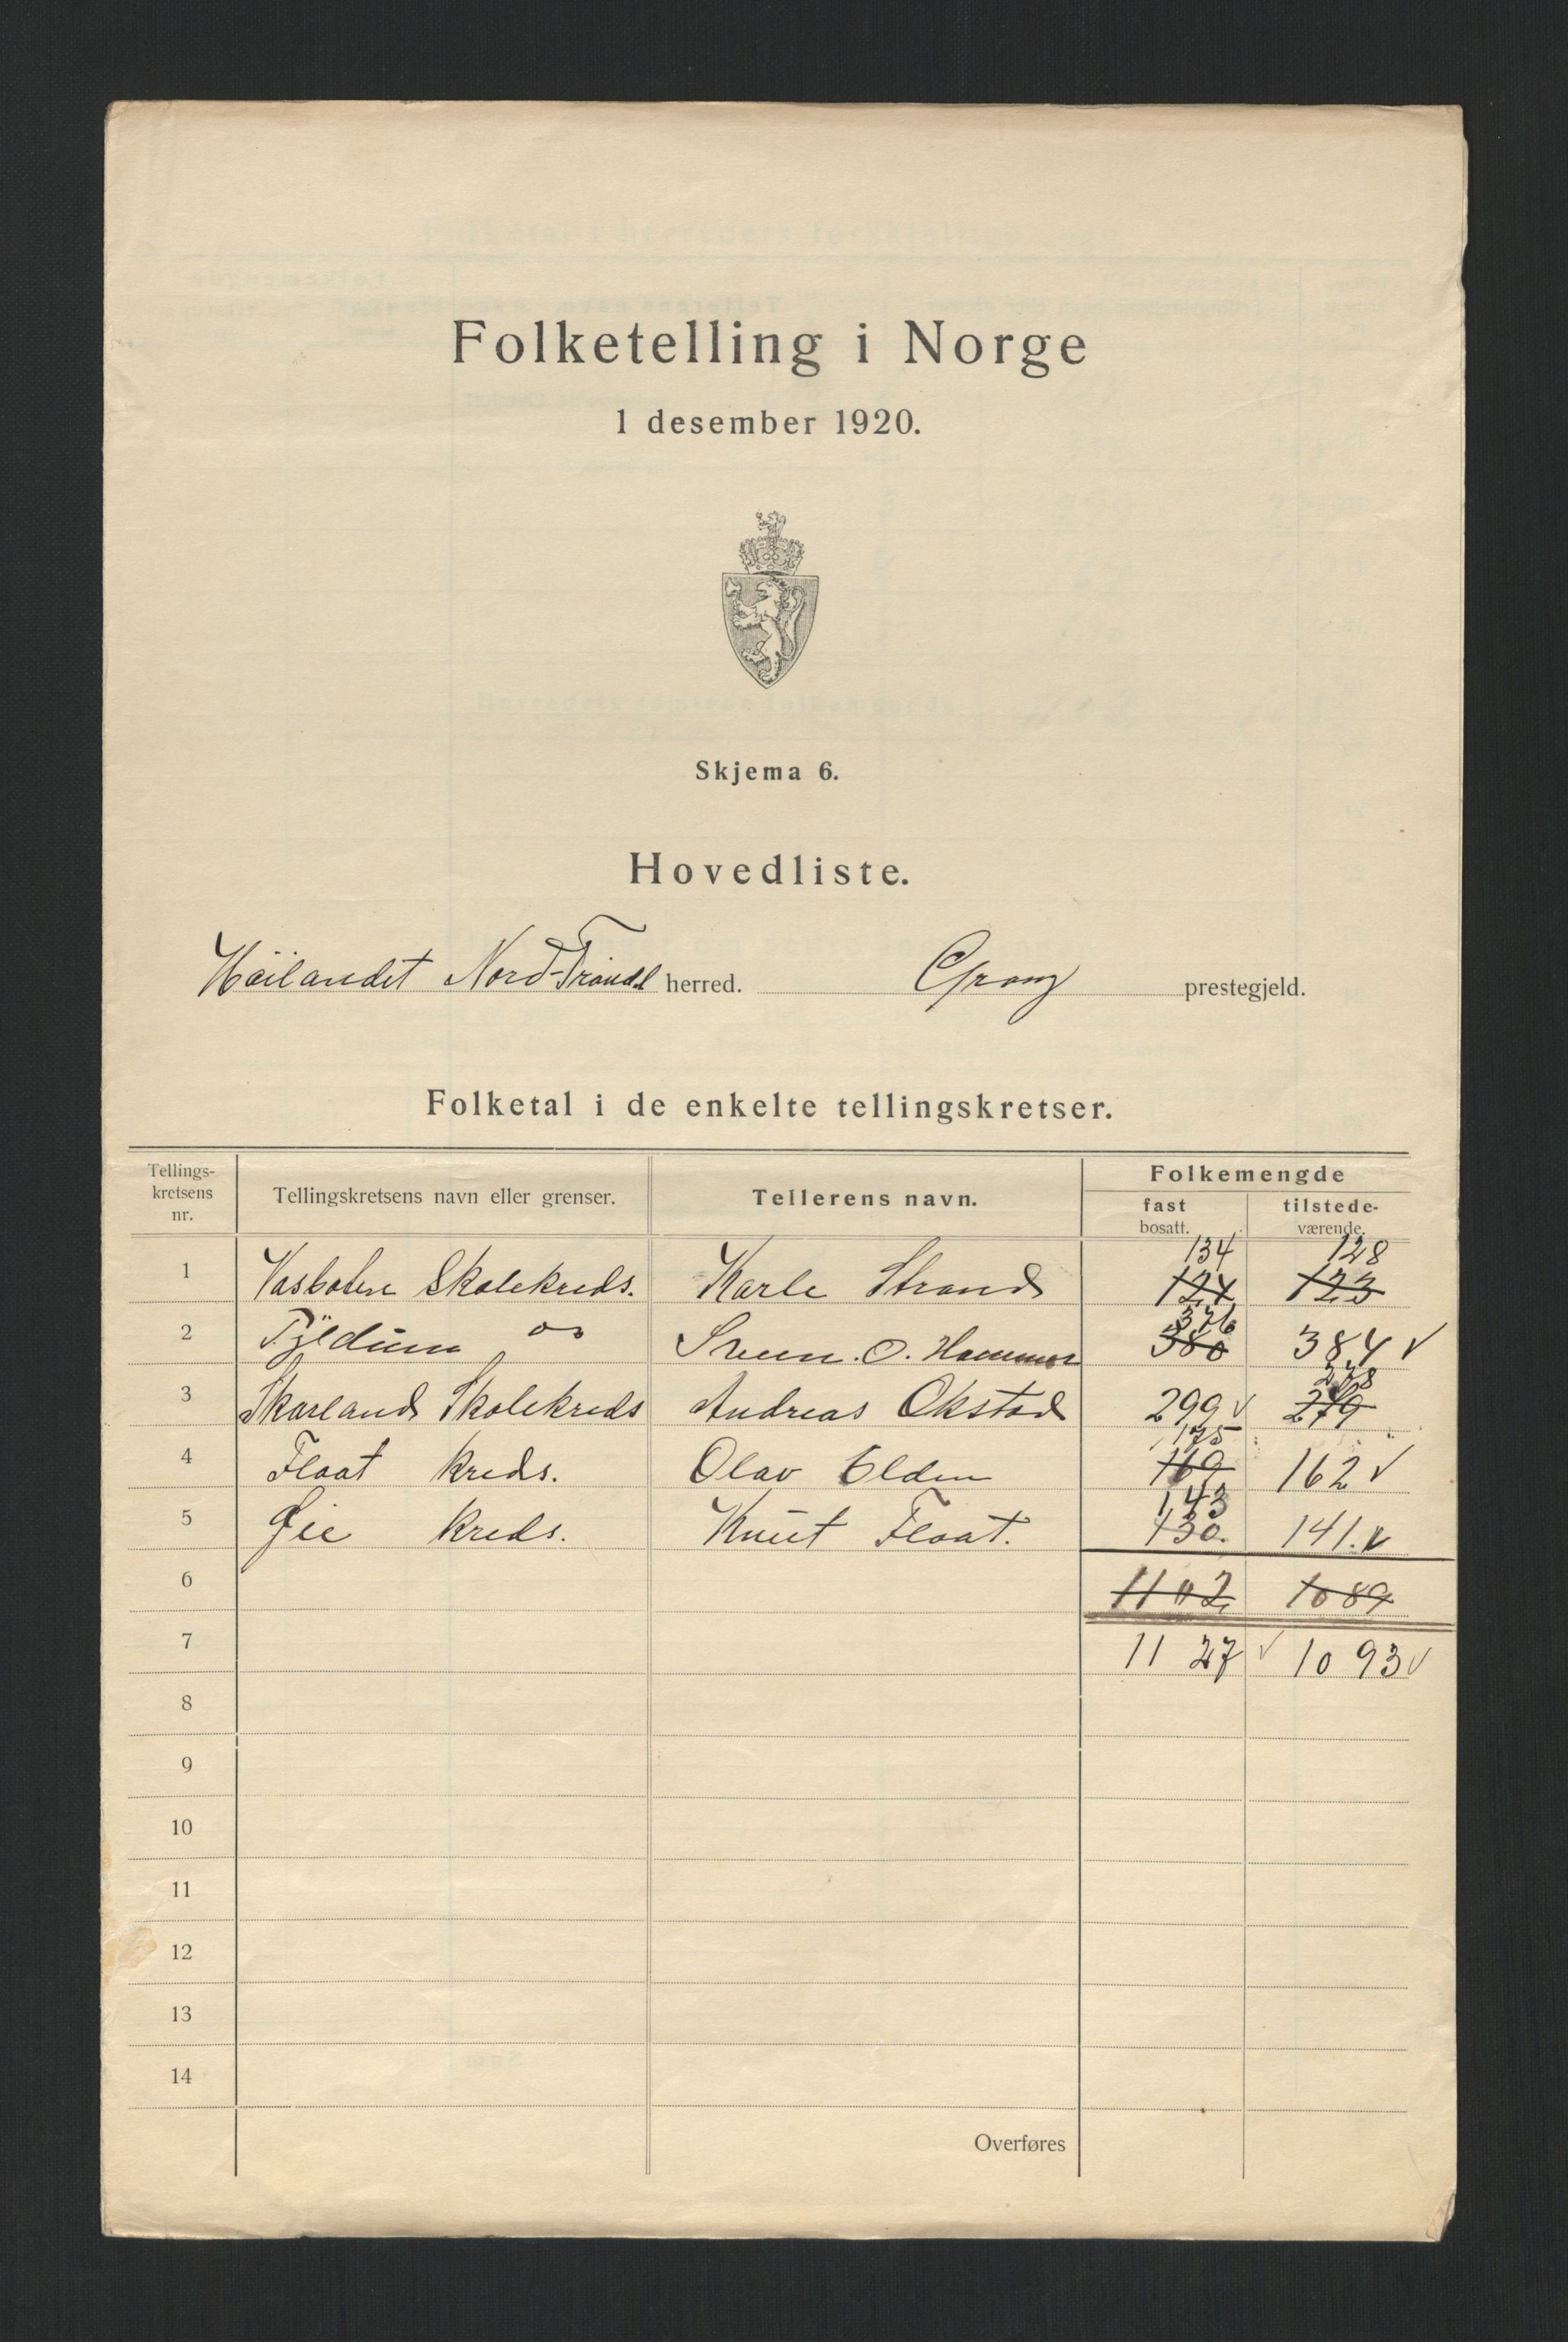 Folketelling i Norge
1 desember 1920.
Skjema 6.
Hovedliste.
Höilandet Nord-Trøndl herred. Grong prestegjeld.
Folketal i de enkelte tellingskretser.
Tellings-
kretsens
nr.
Tellingskretsens navn eller grenser.
Tellerens navn.
Folkemengde
fast
bosatt.
tilstede-
værende.
134 128
1 Vasbotn Skolekreds. Karle Strand 124 123
376
2 Tyldum Sveen. O. Hammer 380 384 ✓
278
3 Skarland Skolekreds Andreas Okstad 299 ✓ 279
175
4 Flaat Kreds. Olav Elden 169 162 ✓
143
5 Øie Kreds. Knut Flaat. 130. 141. ✓
6 1102 1089
7 1127 ✓ 1093 ✓
8
9
10
11
12
13
14
Overføres